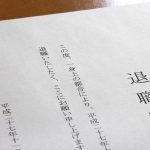 退職
この度、一身上の都合により、
退職いたしたく、ここにお願い申し上げます
平成二十七年十一
平成二十七年十